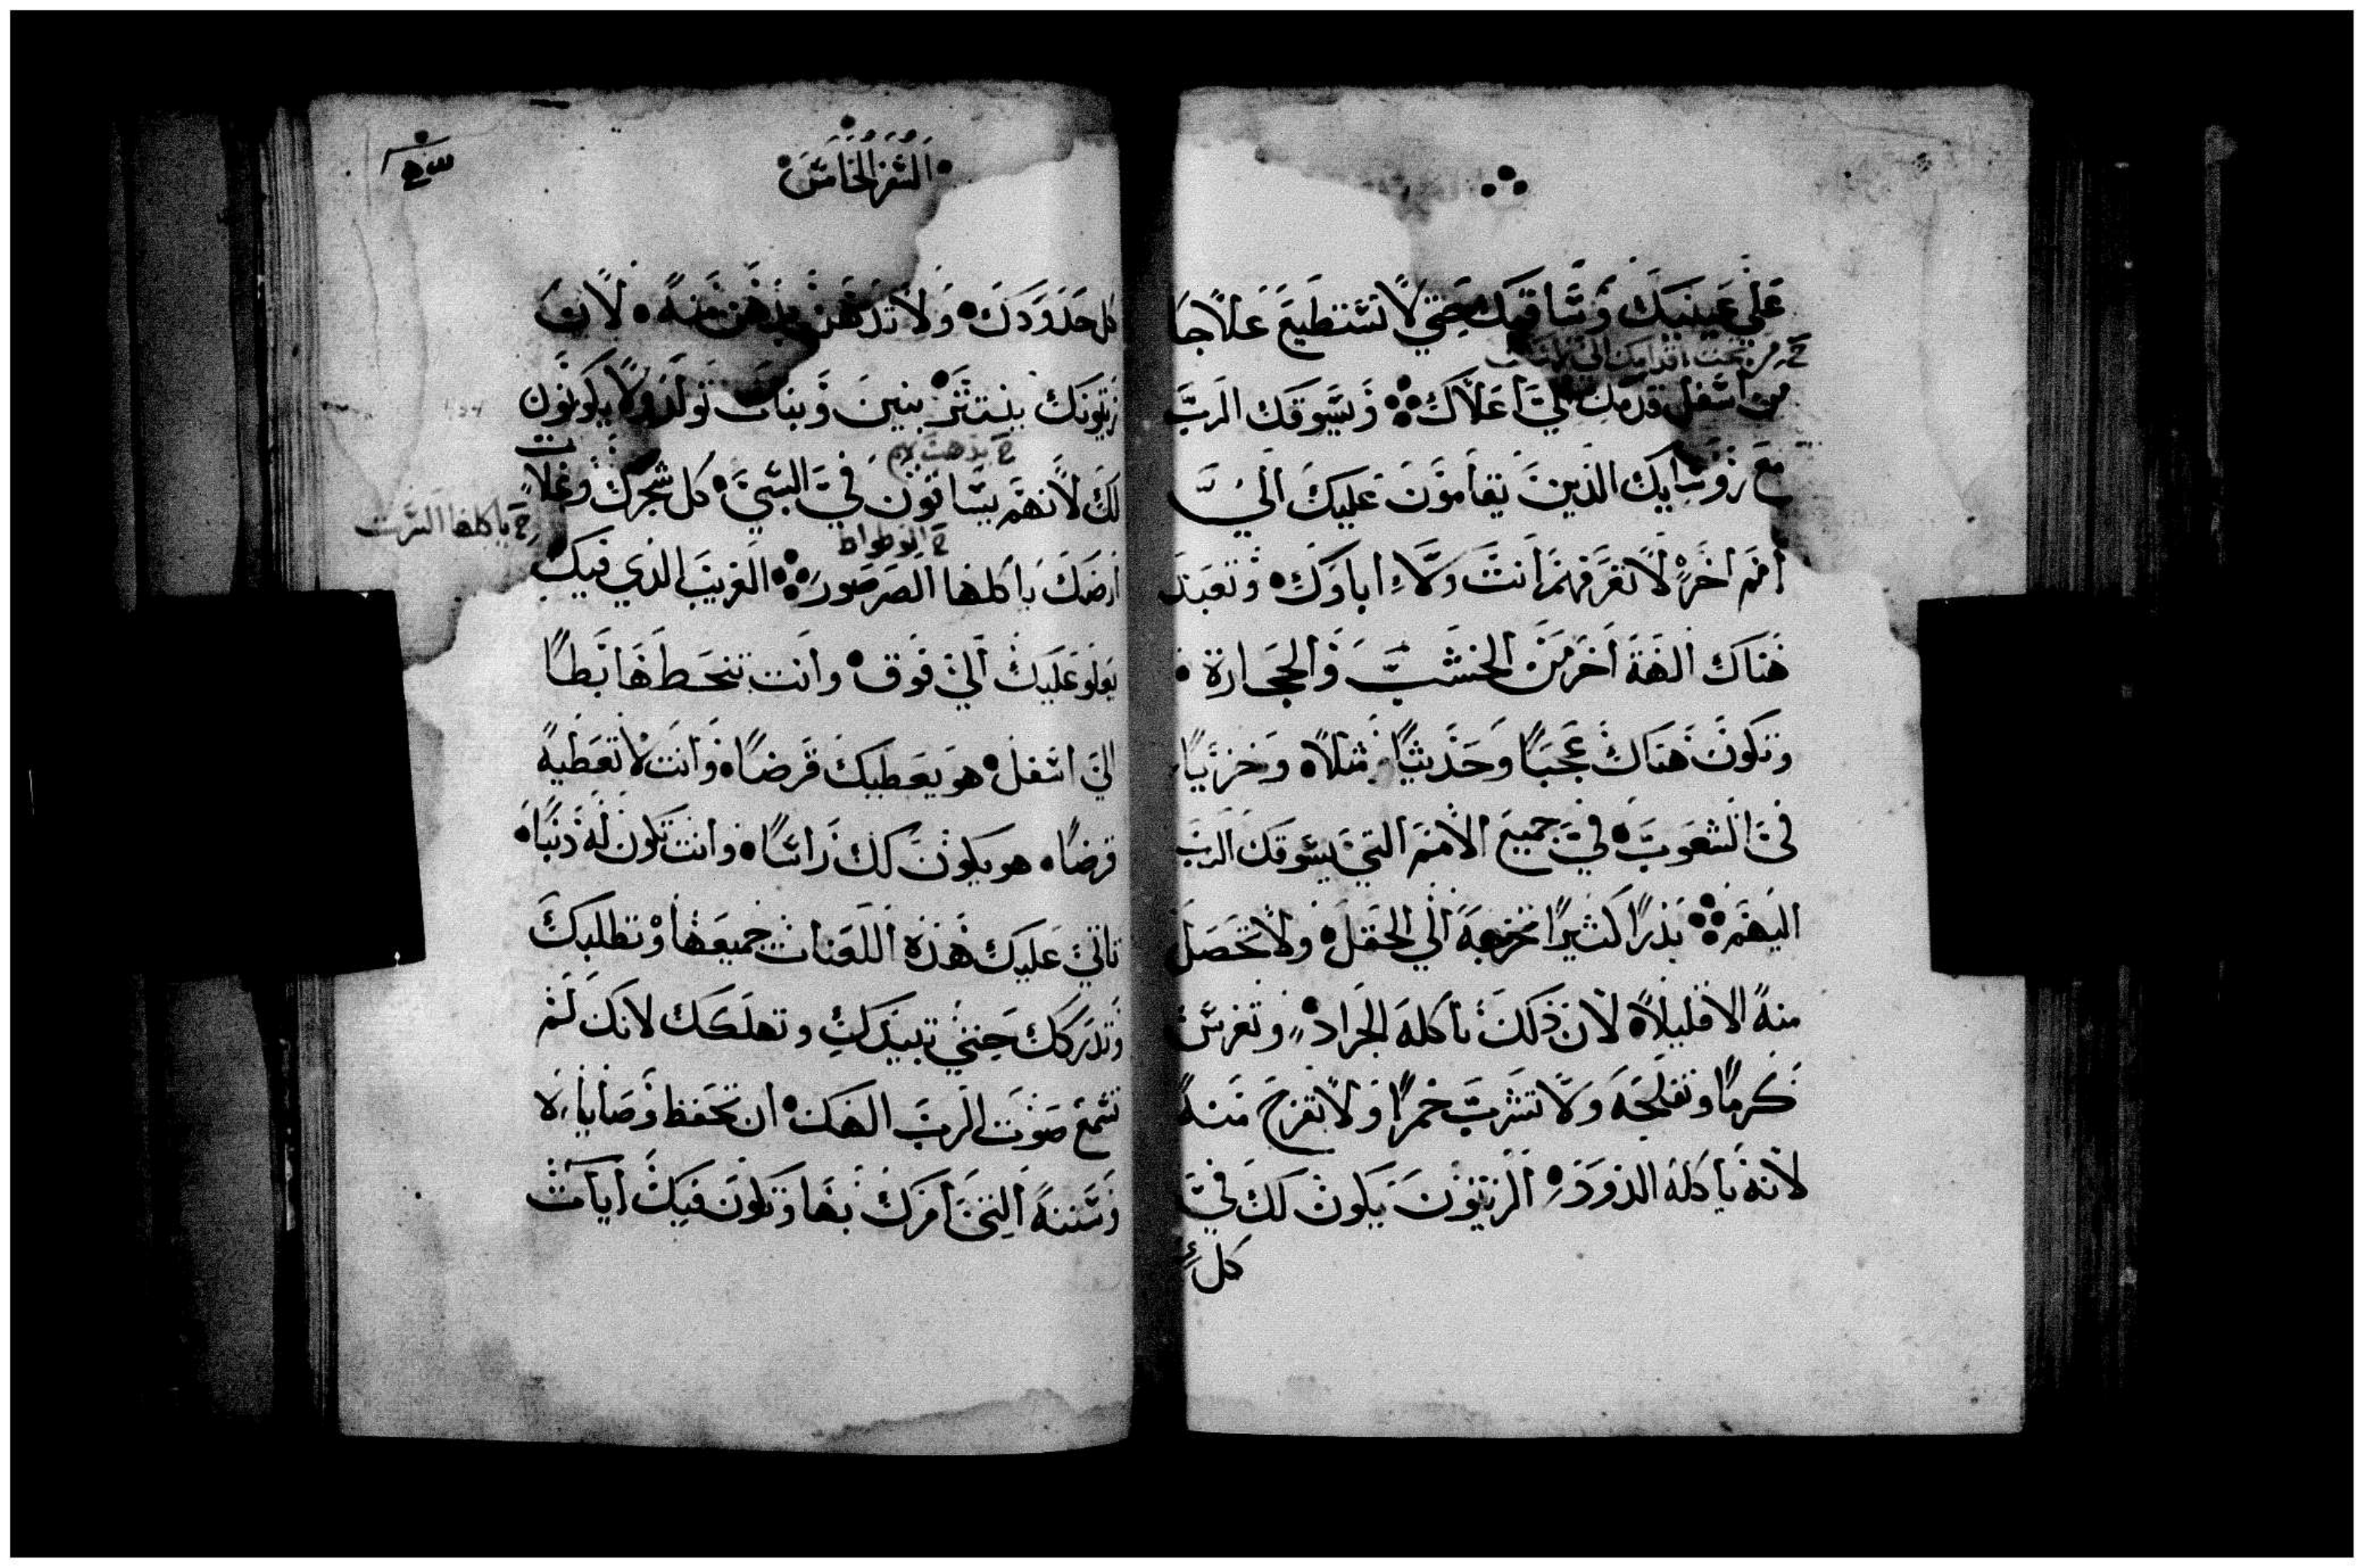 علي عينيك وساقيك حتي لا تستطيع علاجا
ح من تحت اقدامك الي
من اسفل قدمك الي اعلاك ويسوقك الرب
مع روسايك الذين يقامون عليك الي
امم اخر لا تعرفهم انت ولا اباوك وتعبد
هناك الهة اخر من الخشب والحجارة
وتكون هناك عجبا وحديثا مثلا وخزيا
في الشعوب في جميع الامم التي يسوقك الرب
اليهم بذرا كثيرا تخرجه الي الحقل ولا تحصل
منه الا قليلا لان ذلك ياكله الجراد وتغرس
كرما وتفلحه ولا تشرب خمرا ولا تفرح منه
لانه ياكله الدود الزيتون يكون لك في
كل
السفر الخامس
كل حدودك ولا تدهن بدهن منه لان
زيتونك ينتثر بنين وبنات تولد ولا يكونون
ح يذهب
لك لانهم يساقون في السبي كل شجرك وغلات
ح ياكلها
ح الوطواط
ارضك ياكلها الصرصور الغريب الذي فيك
يعلو عليك الي فوق وانت تنحط هابطا
الي اسفل هو يعطيك قرضا وانت لا تعطيه
قرضا هو يكون لك راسا وانت تكون له ذنبا
تاتي عليك هذه اللعنات جميعها وتطلبك
وتدركك حتي تبيدك وتهلكك لانك لم
تسمع صوت الرب الهك ان تحفظ وصاياه
وسننه التي امرك بها وتكون فيك ايات